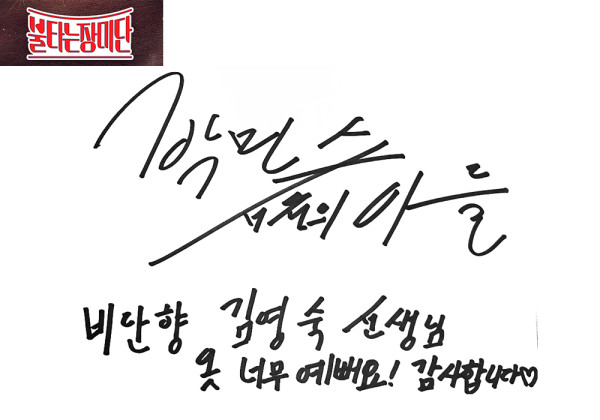 불타는장미단
박민수
의 아들
비단향 김영숙 선생님
옷 너무 예뻐요! 감사합니다♡